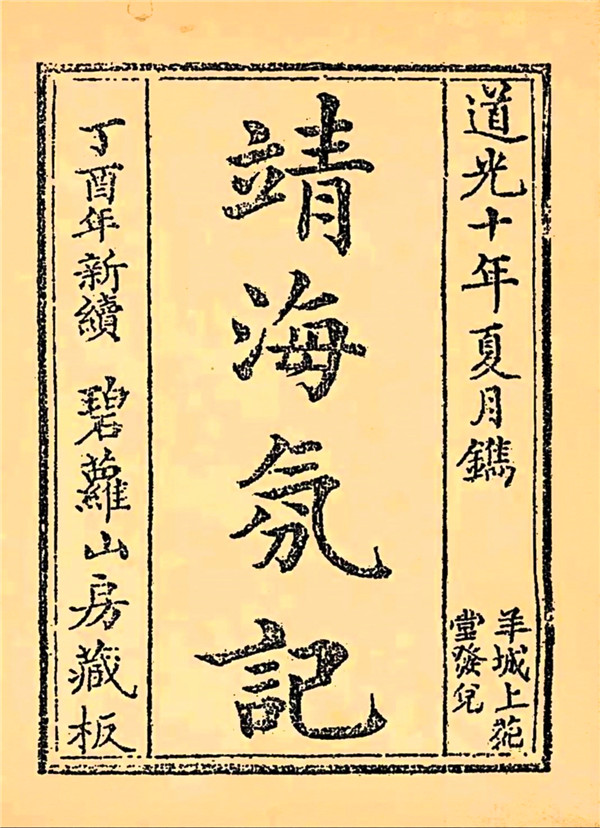 道光十年夏月鐫
羊城上苑
堂發兌
靖海氛記
丁酉年新續 碧蘿山房藏板